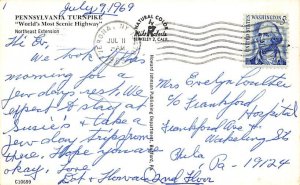 July 7, 1969
PENNSYLVANIA TURNPIKE
"World's Most Scenic Highway"
Northeast Extension
Hi Ev,
We took off this
morning for a
few days rest. Will
expect to stay at
Susie's & take a
few day trips from
there. Hope you are
okay. Love,
Dot & Howard
C10699
NATURAL COLOR
Mike Roberts
BERKELEY 2, CALIF.
JUL 8
WASHINGTON
Mrs Evelyn Coulter
% Frankford
Hospital
Frankford Ave
Wakeling St
Phila
Pa - 19124
2nd Floor